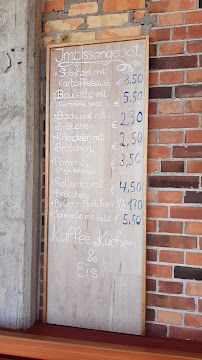 Imbissangebot
Schnitzel mit
Kartoffelsalat € 8.50
Boulette mit € 5.50
Kartoffelsalat
Bockwurst mit € 2.30
Brötchen
Knacker mit € 2.50
Brötchen
Pommes € 3,50
mit € 4,50
Brötchen
Brötchen 1,30
mit € 5,50
Kaffee, Kuchen
&
Eis